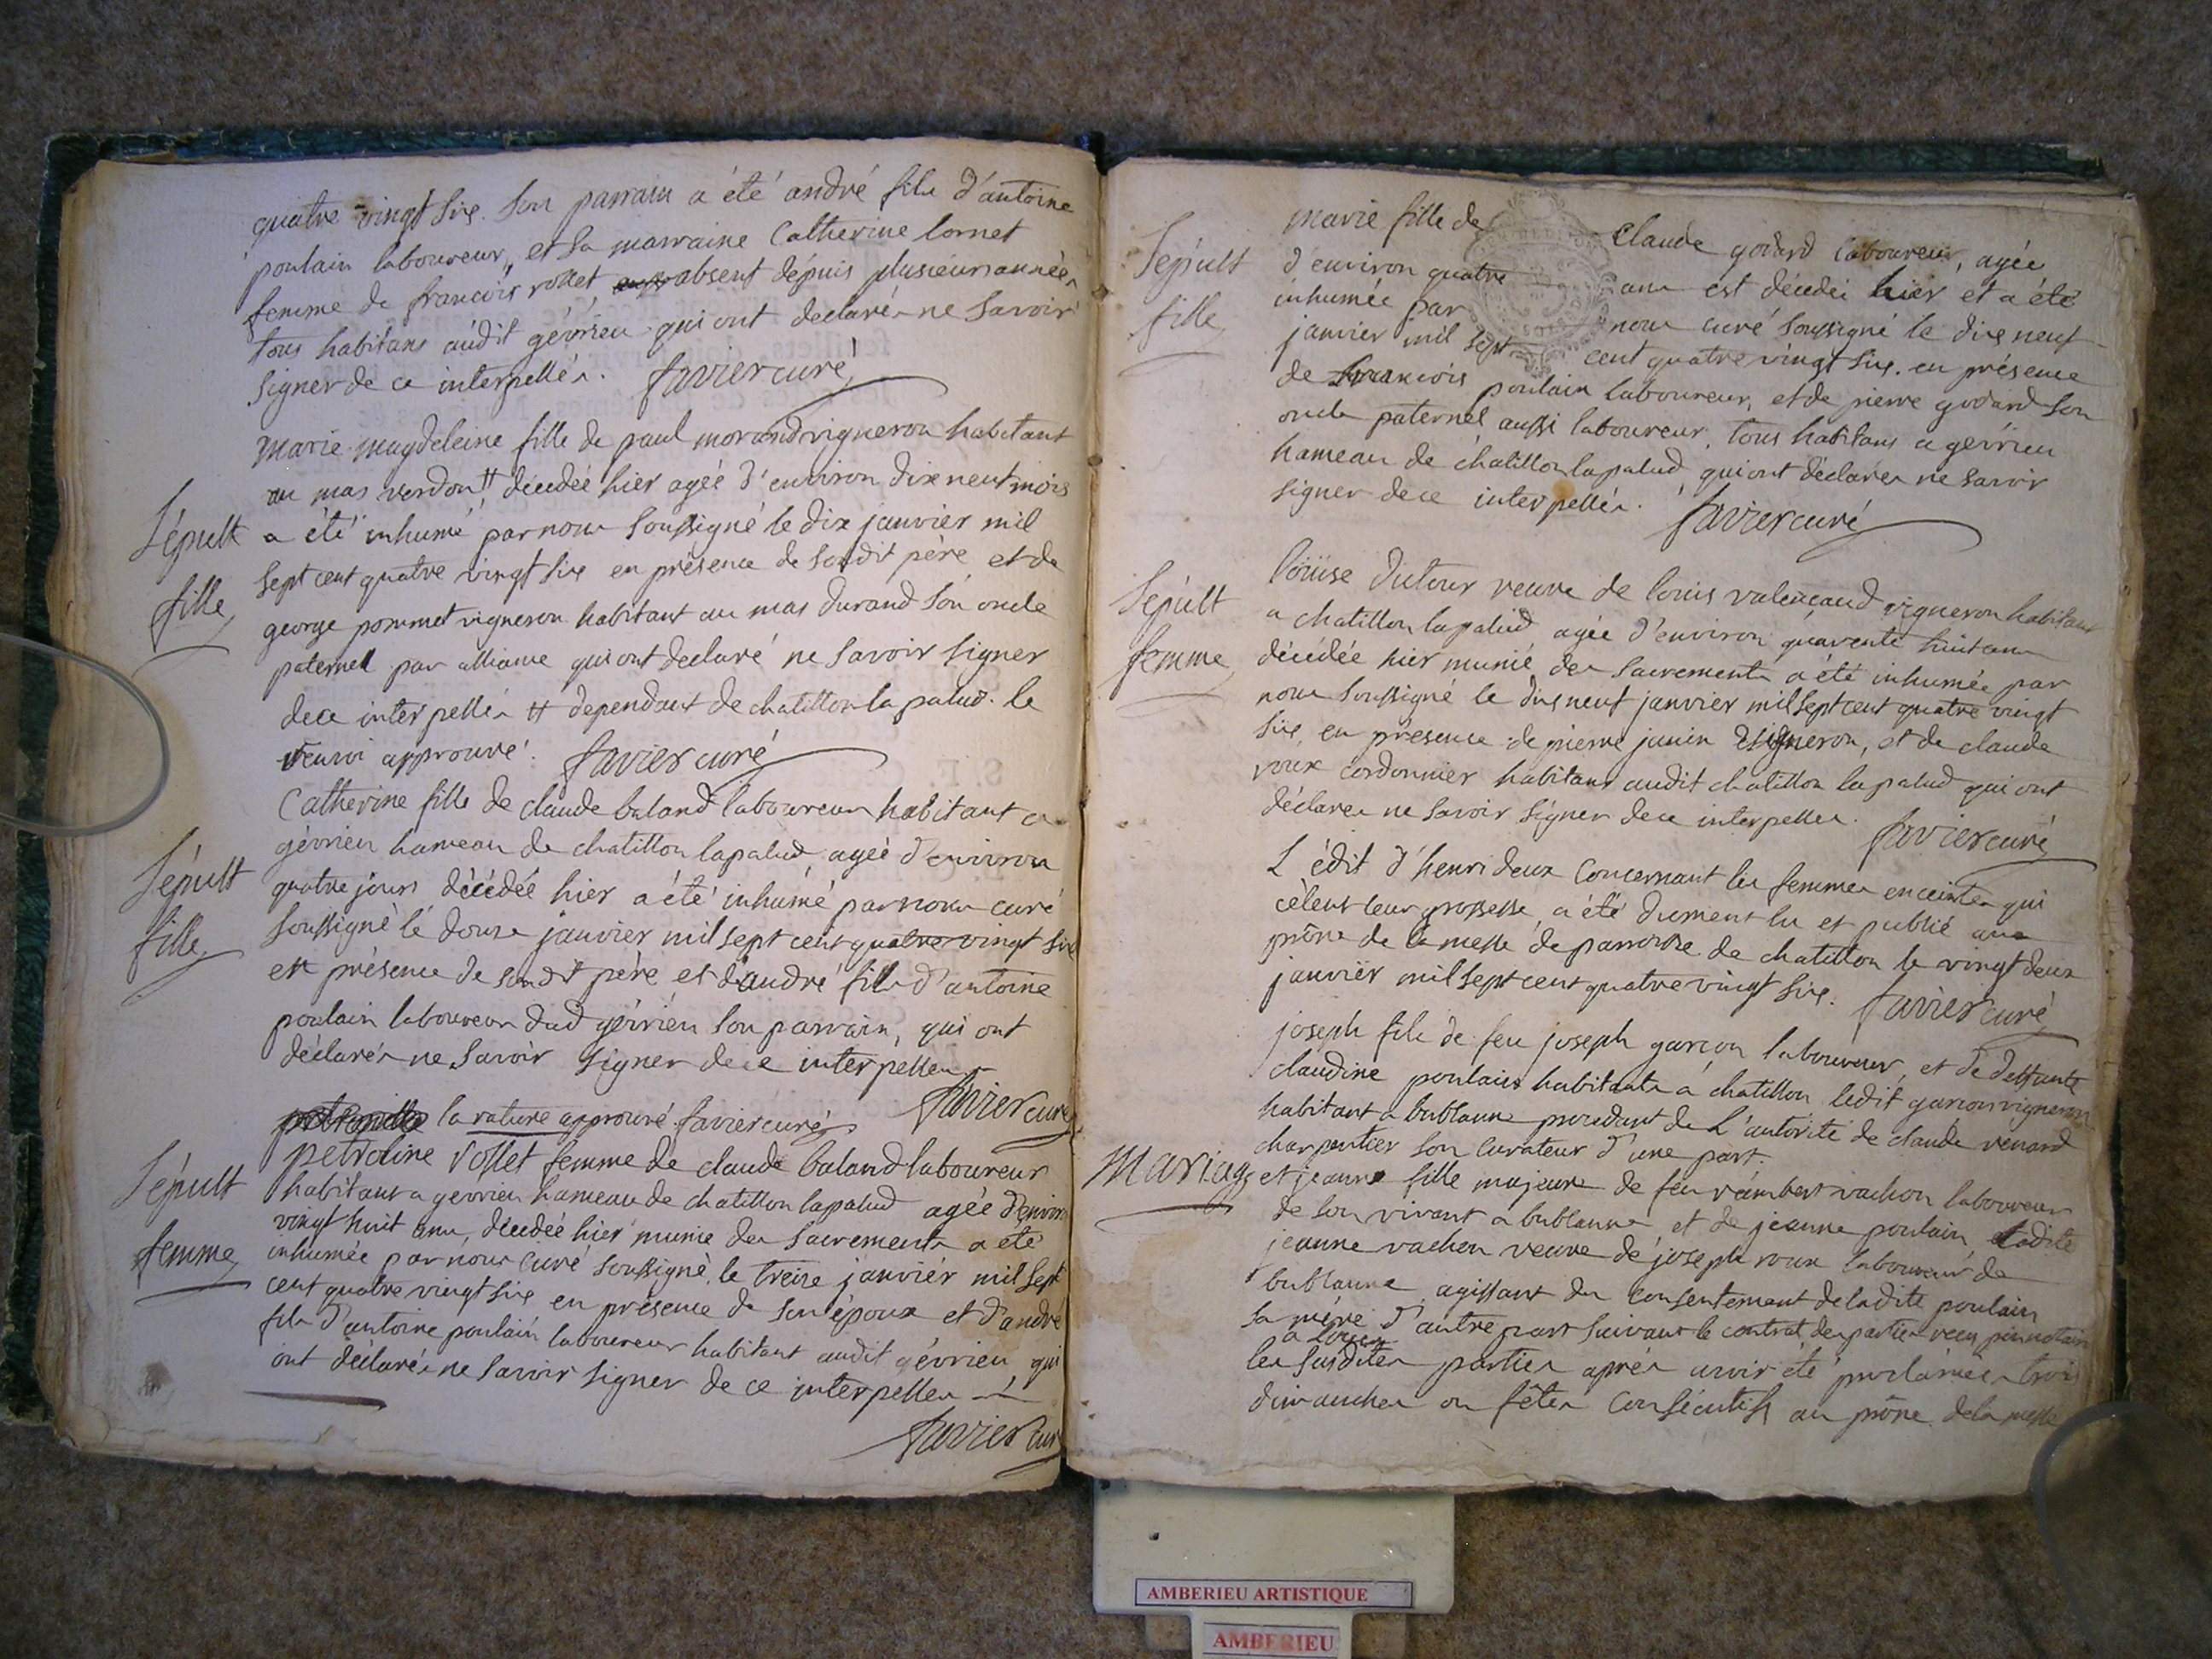 quatre vingt six. son parrain a été andré fils d'antoine
poulain laboureur, et sa marraine Catherine lornet
femme de francois rollet absent dépuis plusieurs années
tous habitans audit gévrieu qui ont declarés ne savoir
signer de ce interpellés. favier curé
marie magdeleine fille de paul morand vigneron habitant
au mas verdon # décedée hier agéé d'environ dix neuf mois
Sépult
a été inhumé par nous soussigné le dix janvier mil
sept cent quatre vingt six en présence de sondit père et de
fille
george pommet vigneron habitant au mas durand son oncle
paternel par alliance qui ont declaré ne savoir signer
de ce interpellés # dependant de chatillon la palud. le
renvoi approuvé. favier curé
Catherine fille de claude baland laboureur habitant a
gévrieu hameau de chatillon lapalud agéé d'environ
Sépult
quatre jours décédée hier a été inhumé par nous curé
soussigné lé douze janvier mil sept cent quatre vingt six
fille
en présence de sondit père et d'andré fils d'antoine
poulain laboureur dud gévrieu son parrain, qui ont
déclarés ne savoir signer de ce interpellés
favier curé
la rature approuvé favier curé
petroine rollet femme de claude baland laboureur
Sépult
habitant a gevrieu hameau de chatillon lapalud agéé d'environ
vingt huit ans, décedéé hier munie des sacrements a été
femme
inhumée par nous curé soussigné. le treize janviér mil sept
cent quatre vingt six en présence de son époux et d'andré
fils d'antoine poulain laboureur habitant audit gévrieu qui
ont déclarés ne savoir signer de ce interpellés
favier curé
marie fille de Claude godard laboureur, agée
Sépult
d'environ quatre ans est décedéé hier et a été
inhumée par nous curé soussigné le dix neuf
fille
janvier mil sept cent quatre vingt six. en présence
de francois poulain laboureur, et de pierre godard son
oncle paternel aussi laboureur, tous habitans a gevrieu
hameau de chatillon lapalud, qui ont déclarés ne savoir
signer de ce interpellés. favier curé
loüise dutour veuve de louis valencaud vigneron habitant
Sépult
a chatillon lapalud agée d'environ quarente huit ans
femme
décédée hier munié des sacrements a été inhumée par
nous soussigné le dix neuf janvier mil sept cent quatre vingt
six, en présence de pierre janin vigneron, et de claude
roux cordonnier habitans audit chatillon lapalud qui ont
déclarés ne savoir signer de ce interpellés.
favier curé
L'édit d'henri deux concernant les femmes enceintes qui
célent leur grossesse, a été dument lu et publié au
prône de la messe de parroisse de chatillon le vingt deux
janvier mil sept cent quatre vingt six. favier curé
joseph fils de feu joseph garçon laboureur, et de deffunte
claudine poulain habitants a chatillon ledit garcon vigneron
habitant a bublanne procedant de L'autorité de claude renard
charpentier son curateur d'une part.
Mariage
et jeanne fille majeure de feu rambert vachon laboureur
de son vivant a bublanne et de jeanne poulain ladite
jeanne vachon veuve de joseph roux laboureur de
bublanne agissant du consentement de ladite poulain
sa mère d'autre part suivant le contrat des parties recu notaire
les susdites parties aprés avoir été proclamées trois
dimanches ou fêtes consécutifs au prône de la messe
AMBERIEU ARTISTIQUE
AMBERIEU